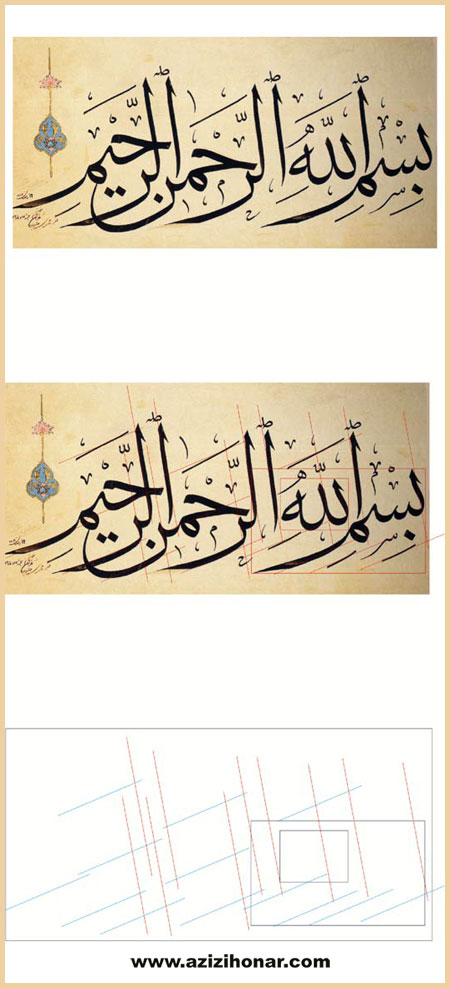 بسم الله الرحمن الرحیم
بسم الله الرحمن الرحیم
www.azizihonar.com